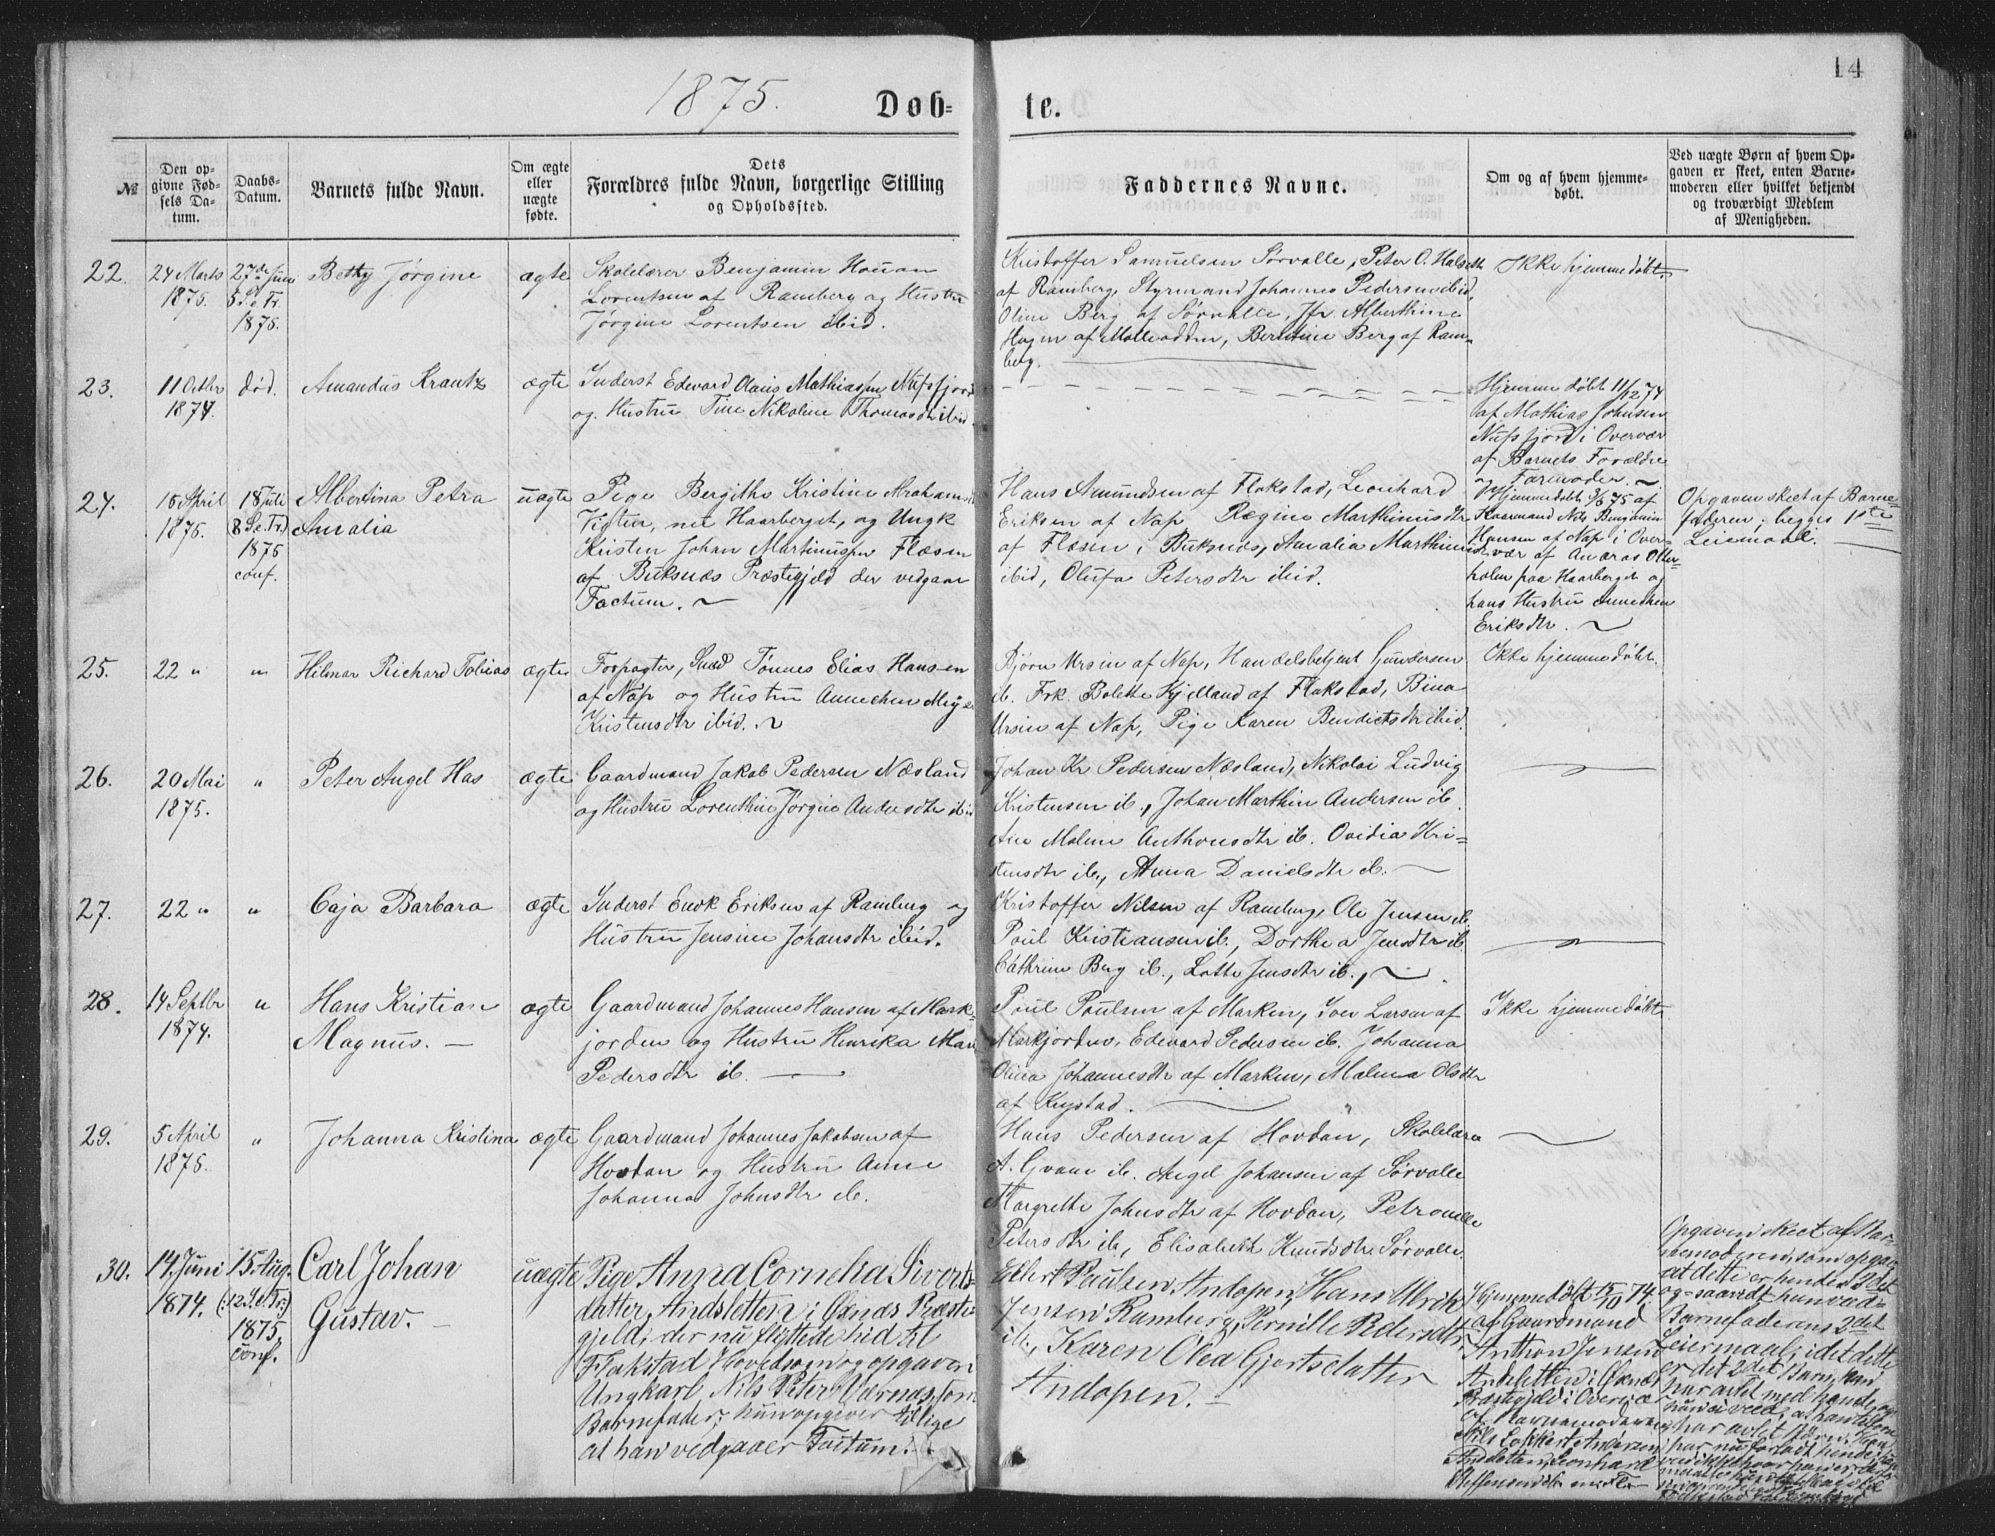 14
1875.
Døb-
te.
№
Den op-
givne Fød-
sels Da-
tum.
Daabs-
Datum.
Barnets fulde Navn.
Om ægte
eller
uægte
fødte.
Dets
Forældres fulde Navn, borgerlige Stilling
og Opholdssted.
Faddernes Navne.
Om og af hvem hjemme-
døbt.
Ved uægte Børn af hvem Op-
gaven er skeet, enten Barne-
moderen eller hvilket bekjendt
og troværdigt Medlem
af Menigheden.
22.
24 Marts
1875.
27de Juni
5 S.e.Tr.
1875.
Betty Jørgine
ægte
Skolelærer Benjamin Houan
Lorentsen af Ramberg og Hustru
Jørgine Lorentsen ibid.
Kristoffer Samuelsen Sørvalle, Peter O.
af Ramberg, Styrmand Johannes Pedersen ibid,
Oline Berg af Sørvalle, Jfr Alberthine
Hagen af Molleodden, Berntine Berg af Ram-
berg.
Ikke hjemmedøbt.
23.
11 Octbr
1874.
død.
Amandus Krantz
ægte
Inderst Edevard Olaus Mathiassen Nufsfjord
og Hustru Tine Nikoline Thomasdtr ibid.
Hjemmedøbt 11/12 74
af Mathias Johnsen
Nufsfjord i Overvær
af Barnets Forældre
og Farmoder.
24.
15 April
1875.
18 Juli
8 S.e.Tr.
1875
conf.
Albertina Petra
Amalia
uægte
Pige Bergithe Kristine Abrahamsdtr
Vigten, nu Haarberget, og Ungk
Kristen Johan Martinussen Flæsen
af Buksnæs Præstegjeld der vedgaar
Factum.
Hans Amundsen af Flakstad, Leonhard
Eriksen af Nap, Regine Marthinusdtr
af Flæsen i Buksnæs, Amalia Marthinusdtr
ibid, Olufa Petersdtr ibid.
Hjemmedøbt 9/6 75 af
Gaarmand Nils Benjamin
Hansen af Nap i Over-
vær af Andras Otter-
holm paa Haarberget og
hans Hustru Annechen
Eriksdtr.
Opgaven skeet af Barne-
faderen; begges 1ste
Leiermaal.
25.
22 "
"
Hilmar Richard Tobias
ægte
Forpagter, Snæd Tønnes Elias Hansen
af Nap og Hustru Annechen
Kristensdtr ibid.
Bjørn Ursin af Nap, Handelsbetjent Gundersen
ib. Frk. Bolette Kjelland af Flakstad, Bina
Ursin af Nap, Pige Karen Bendictsdtr ibid.
Ikke hjemmedøbt.
26.
20 Mai
1875.
"
Peter Angel Has
ægte
Gaardmand Jakob Pedersen Næsland
og Hustru Lorenthine Jørgine Andersdtr ibid
Johan Kr Pedersen Næsland, Nikolai Ludvig
Kristensen ib., Johan Marthin Andersen ib.
Ane Malene Anthonsdtr ib. Ovidia Kri-
stensdtr ib., Anna Danielsdtr ib.
27.
22 "
"
Caja Barbara
ægte
Inderst Enok Eriksen af Ramberg og
Hustru Jensine Johansdtr ibid.
Kristoffer Nilsen af Ramberg, Ole Jensen ib.
Poul Kristiansen ib., Dorthea Jensdtr ib
Cathrine Berg ib., Lotte Jensdtr ib.
28.
14 Septbr
1874.
"
Hans Kristian
Magnus.
ægte
Gaardmand Johannes Hansen af Mark-
jorden og Hustru Henrika Maria
Pedersdtr ib
Poul Poulsen af Marken, Iver Larsen af
Markjorden, Edevard Pedersen ib. Johanna
Olina Johannesdtr af Marken, Malena Olsdtr
af Krystad.
Ikke hjemmedøbt
29.
5 April
1875.
"
Johanna Kristina
ægte
Gaardmand Johannes Jakobsen af
Hovdan og Hustru Anne
Johanna Johnsdtr ib.
Hans Pedersen af Hovdan, Skolelærer
A. Gvam ib. Angel Johansen af Sørvalle
Margrethe Johnsdtr af Hovdan, Petronelle
Petersdtr ib., Elisabeth Knudsdtr Sørvalle.
30.
14. Juni
1874.
15. Aug.
(:12.S.e.Tr:)
1875.
conf.
Carl Johan
Gustav.
uægte
Pige Anna Cornelia Siverts-
datter Andsletten i Øxnæs Præste-
gjeld, der nu flyttede hid til
Flakstad Hovedsogn og opgaven
Ungkarl Nils Peter som
Barnefader; hun opgiver tillige
at han vedgaaer Factum.
Ebbert Paulsen Andopen, Hans Ulrik
Jensen Ramberg, Pernille Pedersdtr
ib., Karen Olea Gjertsdatter
Andopen.
Hjemmedøbt 15/10 74
af Gaardmand
Anthon Jensen
Andsletten i Øxnæs
Præstegjeld i Overvær
af
Nils Andersen
Andsletten, Leonhard
Opgaven skeet af Bar-
nemoderen, som opgav
at dette er hendes 2det
og saavidt hun veed
Barnefaderens 2det
Leiermaal, idet dette
er det 2det Barn, han
har avlet med hende, og